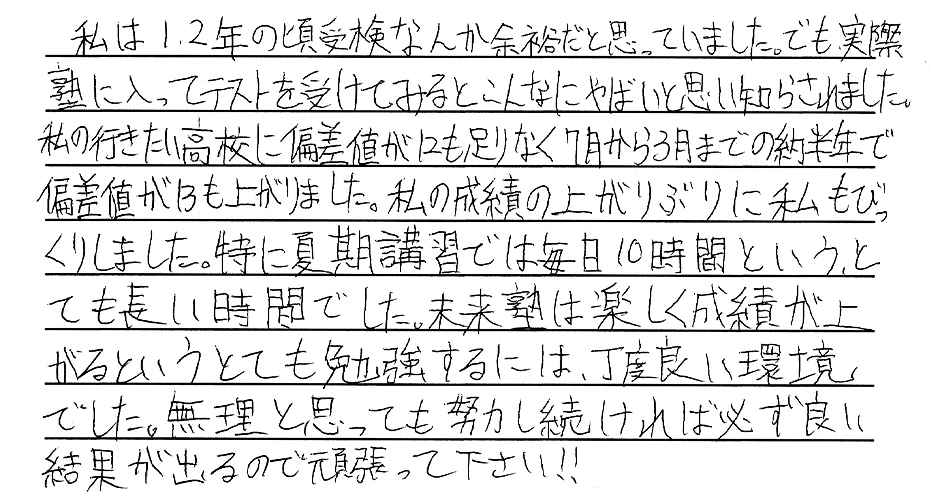 私は1.2年の頃受検なんか余裕だと思っていました。でも実際
塾に入ってテストを受けてみるとこんなにやばいと思い知らされました。
私の行きたい高校に偏差値が12も足りなく7月から3月までの約半年で
偏差値が13も上がりました。私の成績の上がりぶりに私もびっ
くりしました。特に夏期講習では毎日10時間という、と
ても長い時間でした。未来塾は楽しく成績が上
がるというとても勉強するには、丁度良い環境
でした。無理と思っても努力し続ければ必ず良い
結果が出るので頑張って下さい!!